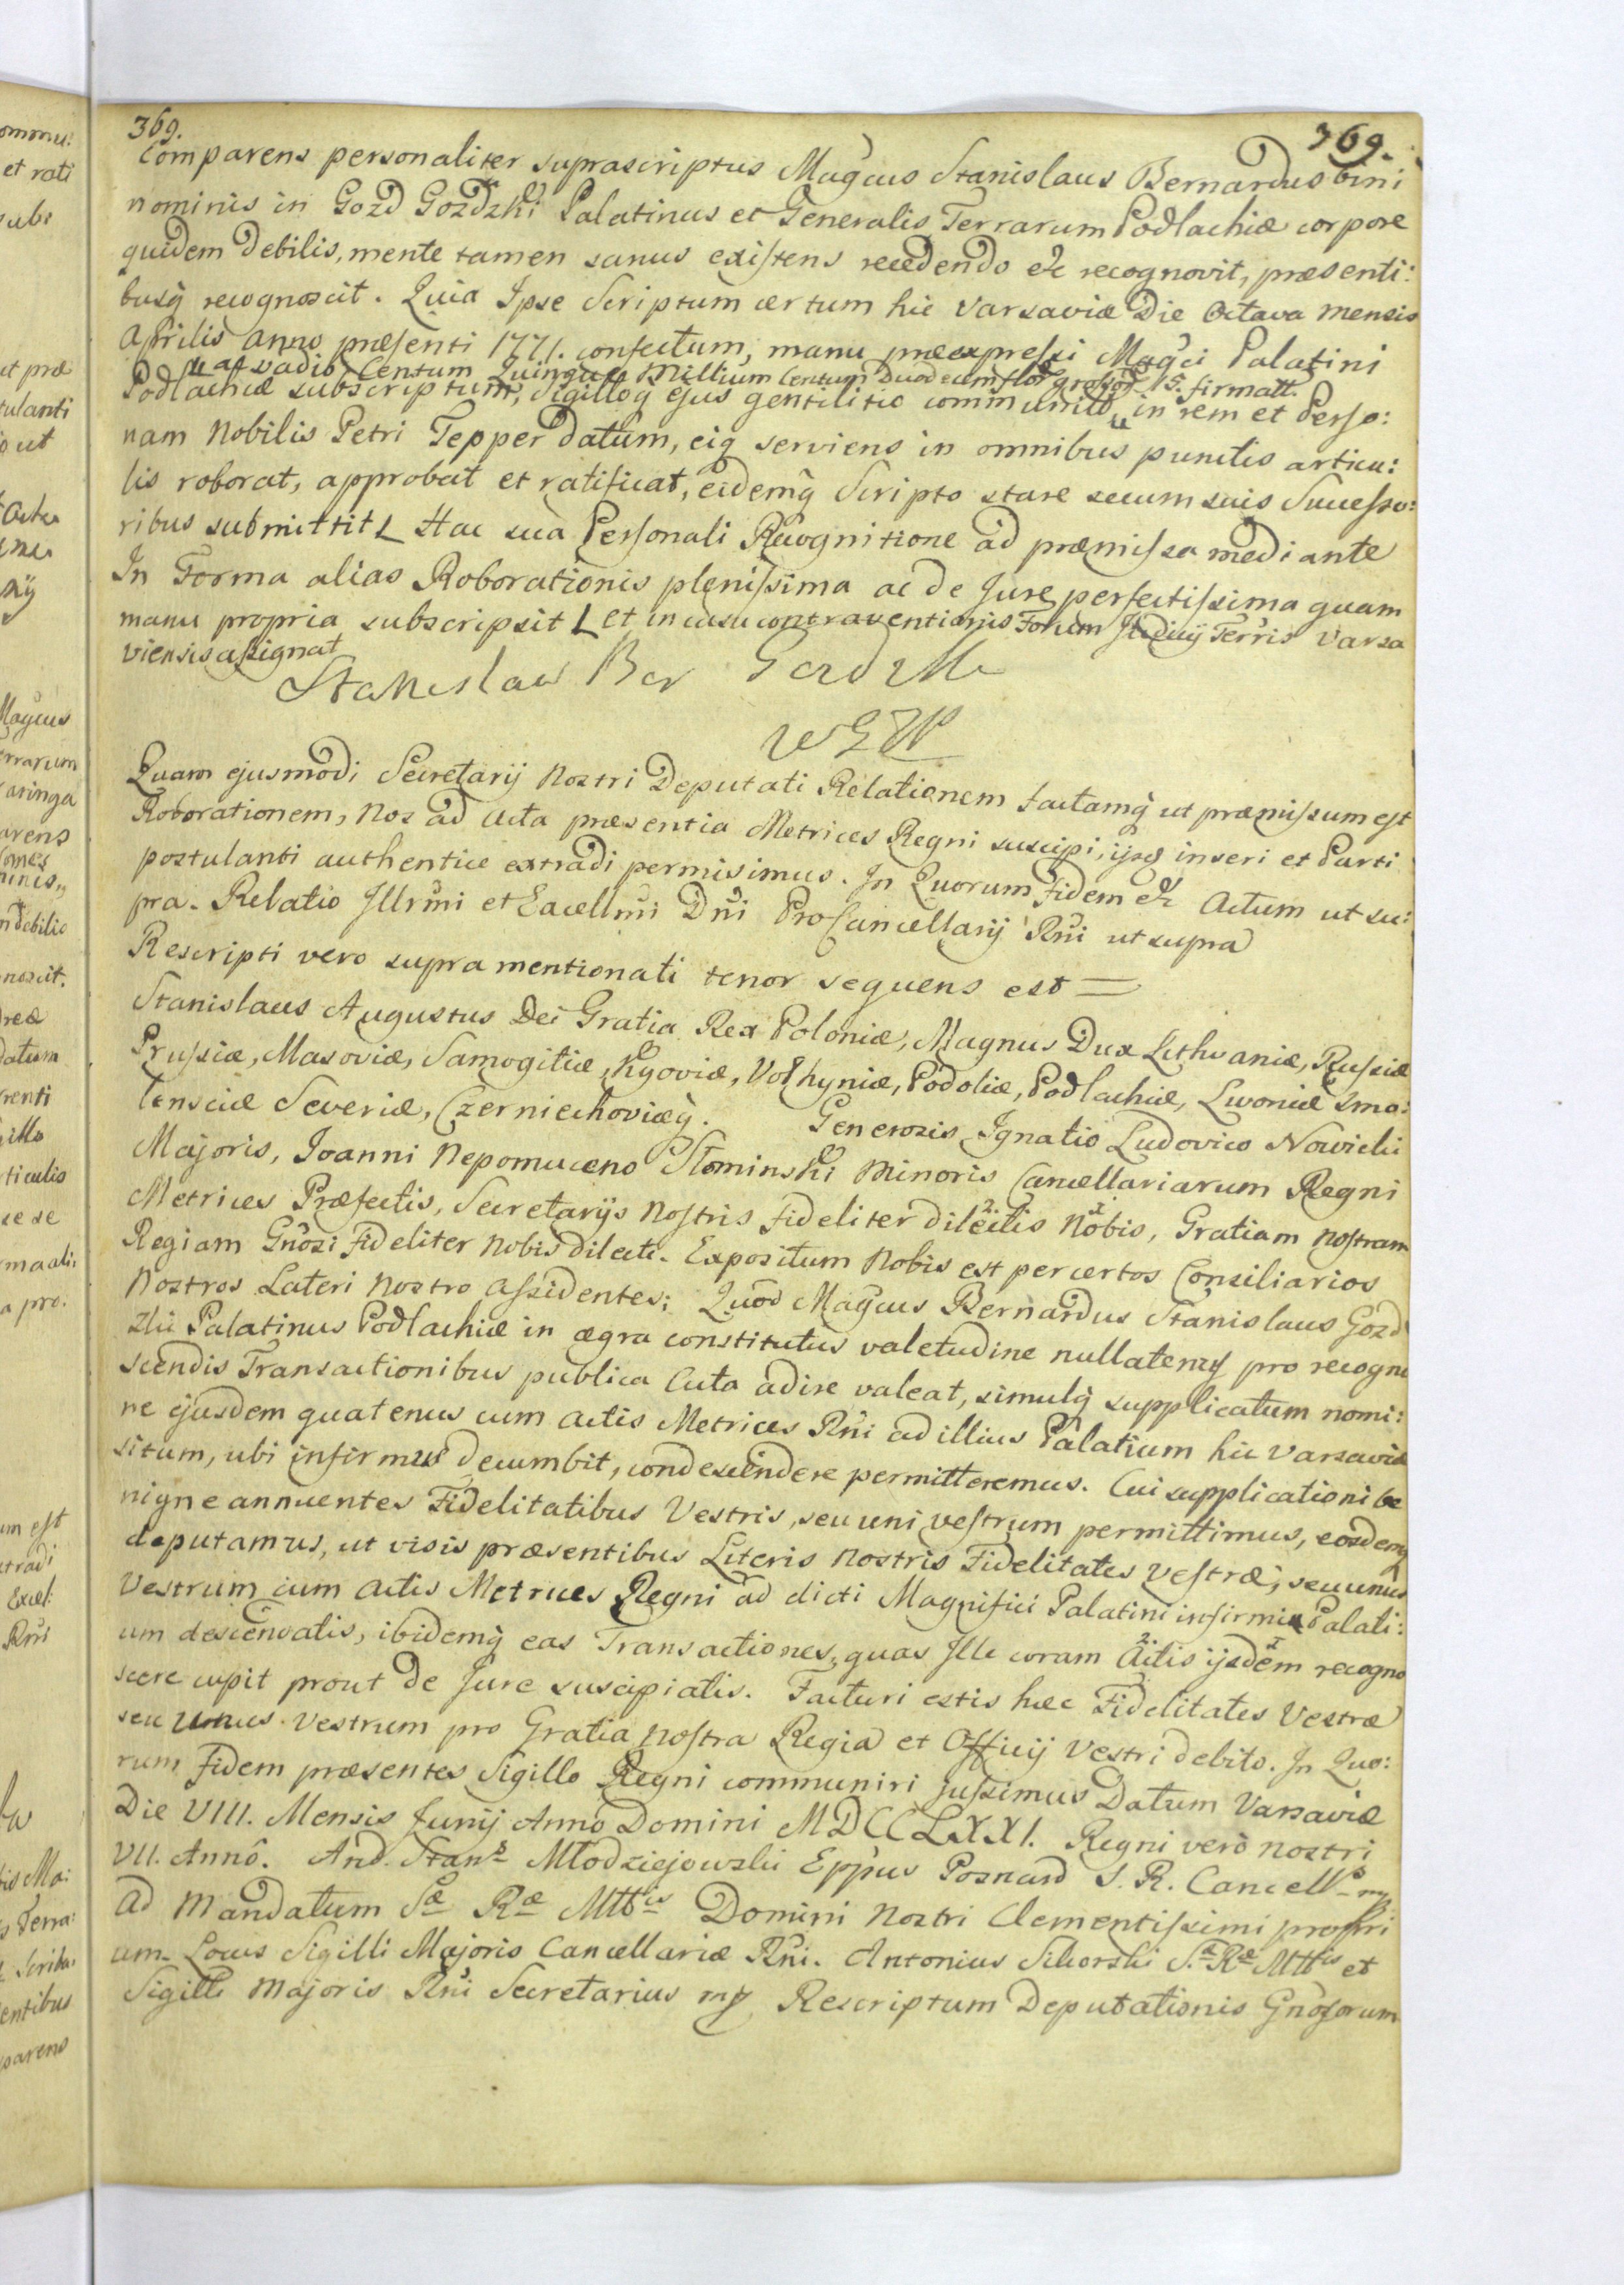 369.
369.
Comparens personaliter suprascriptus Mag̃cus Stanislaus Bernardus bini
nominis in Gozd Gozdzki Palatinus et Generalis Terrarum Podlachiæ corpore
quidem debilis, mente tamen sanus existens recedendo &c recognovit, præsenti:
busq̃ recognoscit. Quia Ipse Scriptum certum hic Varsaviæ Die Octava Mensis
Aprilis Anno præsenti 1771. confectum, manu præexpressi Mag̃ci Palatini
ac vadio Centum Quinque Millium Centum Duodecim flor grossor 15. firmatt.
Podlachiæ subscriptum, Sigilloq̃ ejus gentilitio communitũ, in rem et Perso:
nam Nobilis Petri Tepper datum, eiq̃ serviens in omnibus punctis articu:
lis roborat, approbat et ratificat, eidemq̃ Scripto stare secum suis Successo:
ribus submittit Hac sua Personali Recognitione ad præmissa mediante
In Forma alias Roborationis plenissima ac de Jure perfectissima quam
manu propria subscripsit et in casu contraventionis Forum Terris Varsa
viensis assignat
Stanislaw Ber Gozdzki
WGZP
Quam ejusmodi Secretarij Nostri Deputati Relationem factamq̃ ut præmissum est
Roborationem, Nos ad Acta præsentia Metrices Regni suscipi, ijsq̃ inseri et Parti
postulanti authentice extradi permisimus. In Quorum Fidem &c Actum ut su:
pra. Relatio Illr̃mi et Excellm̃i Dñi ProCancellarij Rñi ut supra
Rescripti vero supra mentionati tenor sequens est =
Stanislaus Augustus Dei Gratia Rex Poloniæ, Magnus Dux Lithvaniæ, Russiæ
Prussiæ, Masoviæ, Samogitiæ, Kyoviæ, Volhyniæ, Podoliæ, Podlachiæ, Livoniæ Smo:
lensciæ Severiæ, Czerniechoviæq̃. Generosis Ignatio Ludovico Nowicki
Majoris, Joanni Nepomuceno Słominski Minoris Cancellariarum Regni
Metrices Præfectis, Secretarijs Nostris Fideliter dilectis Nobis, Gratiam Nostram
Regiam Gnõsi Fideliter Nobis dilecti. Expositum Nobis est per certos Consiliarios
Nostros Lateri Nostro Assidentes; Quod Mag̃cus Bernardus Stanislaus Gozd
zki Palatinus Podlachiæ in ægra constitutus valetudine nullatenus pro recogno
scendis Transactionibus publica Acta adire valeat, simulq̃ supplicatum nomi:
ne ejusdem quatenus cum Actis Metrices Rñi ad illius Palatium hic Varsaviæ
situm, ubi infirmus decumbit, condescendere permitteremus. Cui supplicationi be
nigne annuentes Fidelitatibus Vestris, seu uni vestrum permittimus, eosdemq̃
deputamus, ut visis præsentibus Literis Nostris Fidelitates Vestræ, seu unus
Vestrum cum Actis Metrices Regni ad dicti Magnifici Palatini infirmi Palati:
um descendatis, ibidemq̃ eas Transactiones, quas Ille coram Actis ijsdem recogno
scere cupit prout de Jure suscipiatis. Facturi estis hæc Fidelitates Vestræ
seu unus Vestrum pro Gratia Nostra Regia et Officij Vestri debito. In Quo:
rum Fidem præsentes Sigillo Regni communiri jussimus Datum Varsaviæ
Die VIII. Mensis Junij Anno Domini MDCCLXXI. Regni vero Nostri
VII. Anno. And. Stans Młodziejowski Eppus Posnan S. R. Cancell mp
Ad Mandatum Sæ Ræ Mttis Domini Nostri Clementissimi propri
um. Locus Sigilli Majoris Cancellariæ Rñi. Antonius Sikorski Sæ Ræ Mttis et
Sigilli Majoris Rñi Secretarius mp Rescriptum Deputationis Gnõsorum